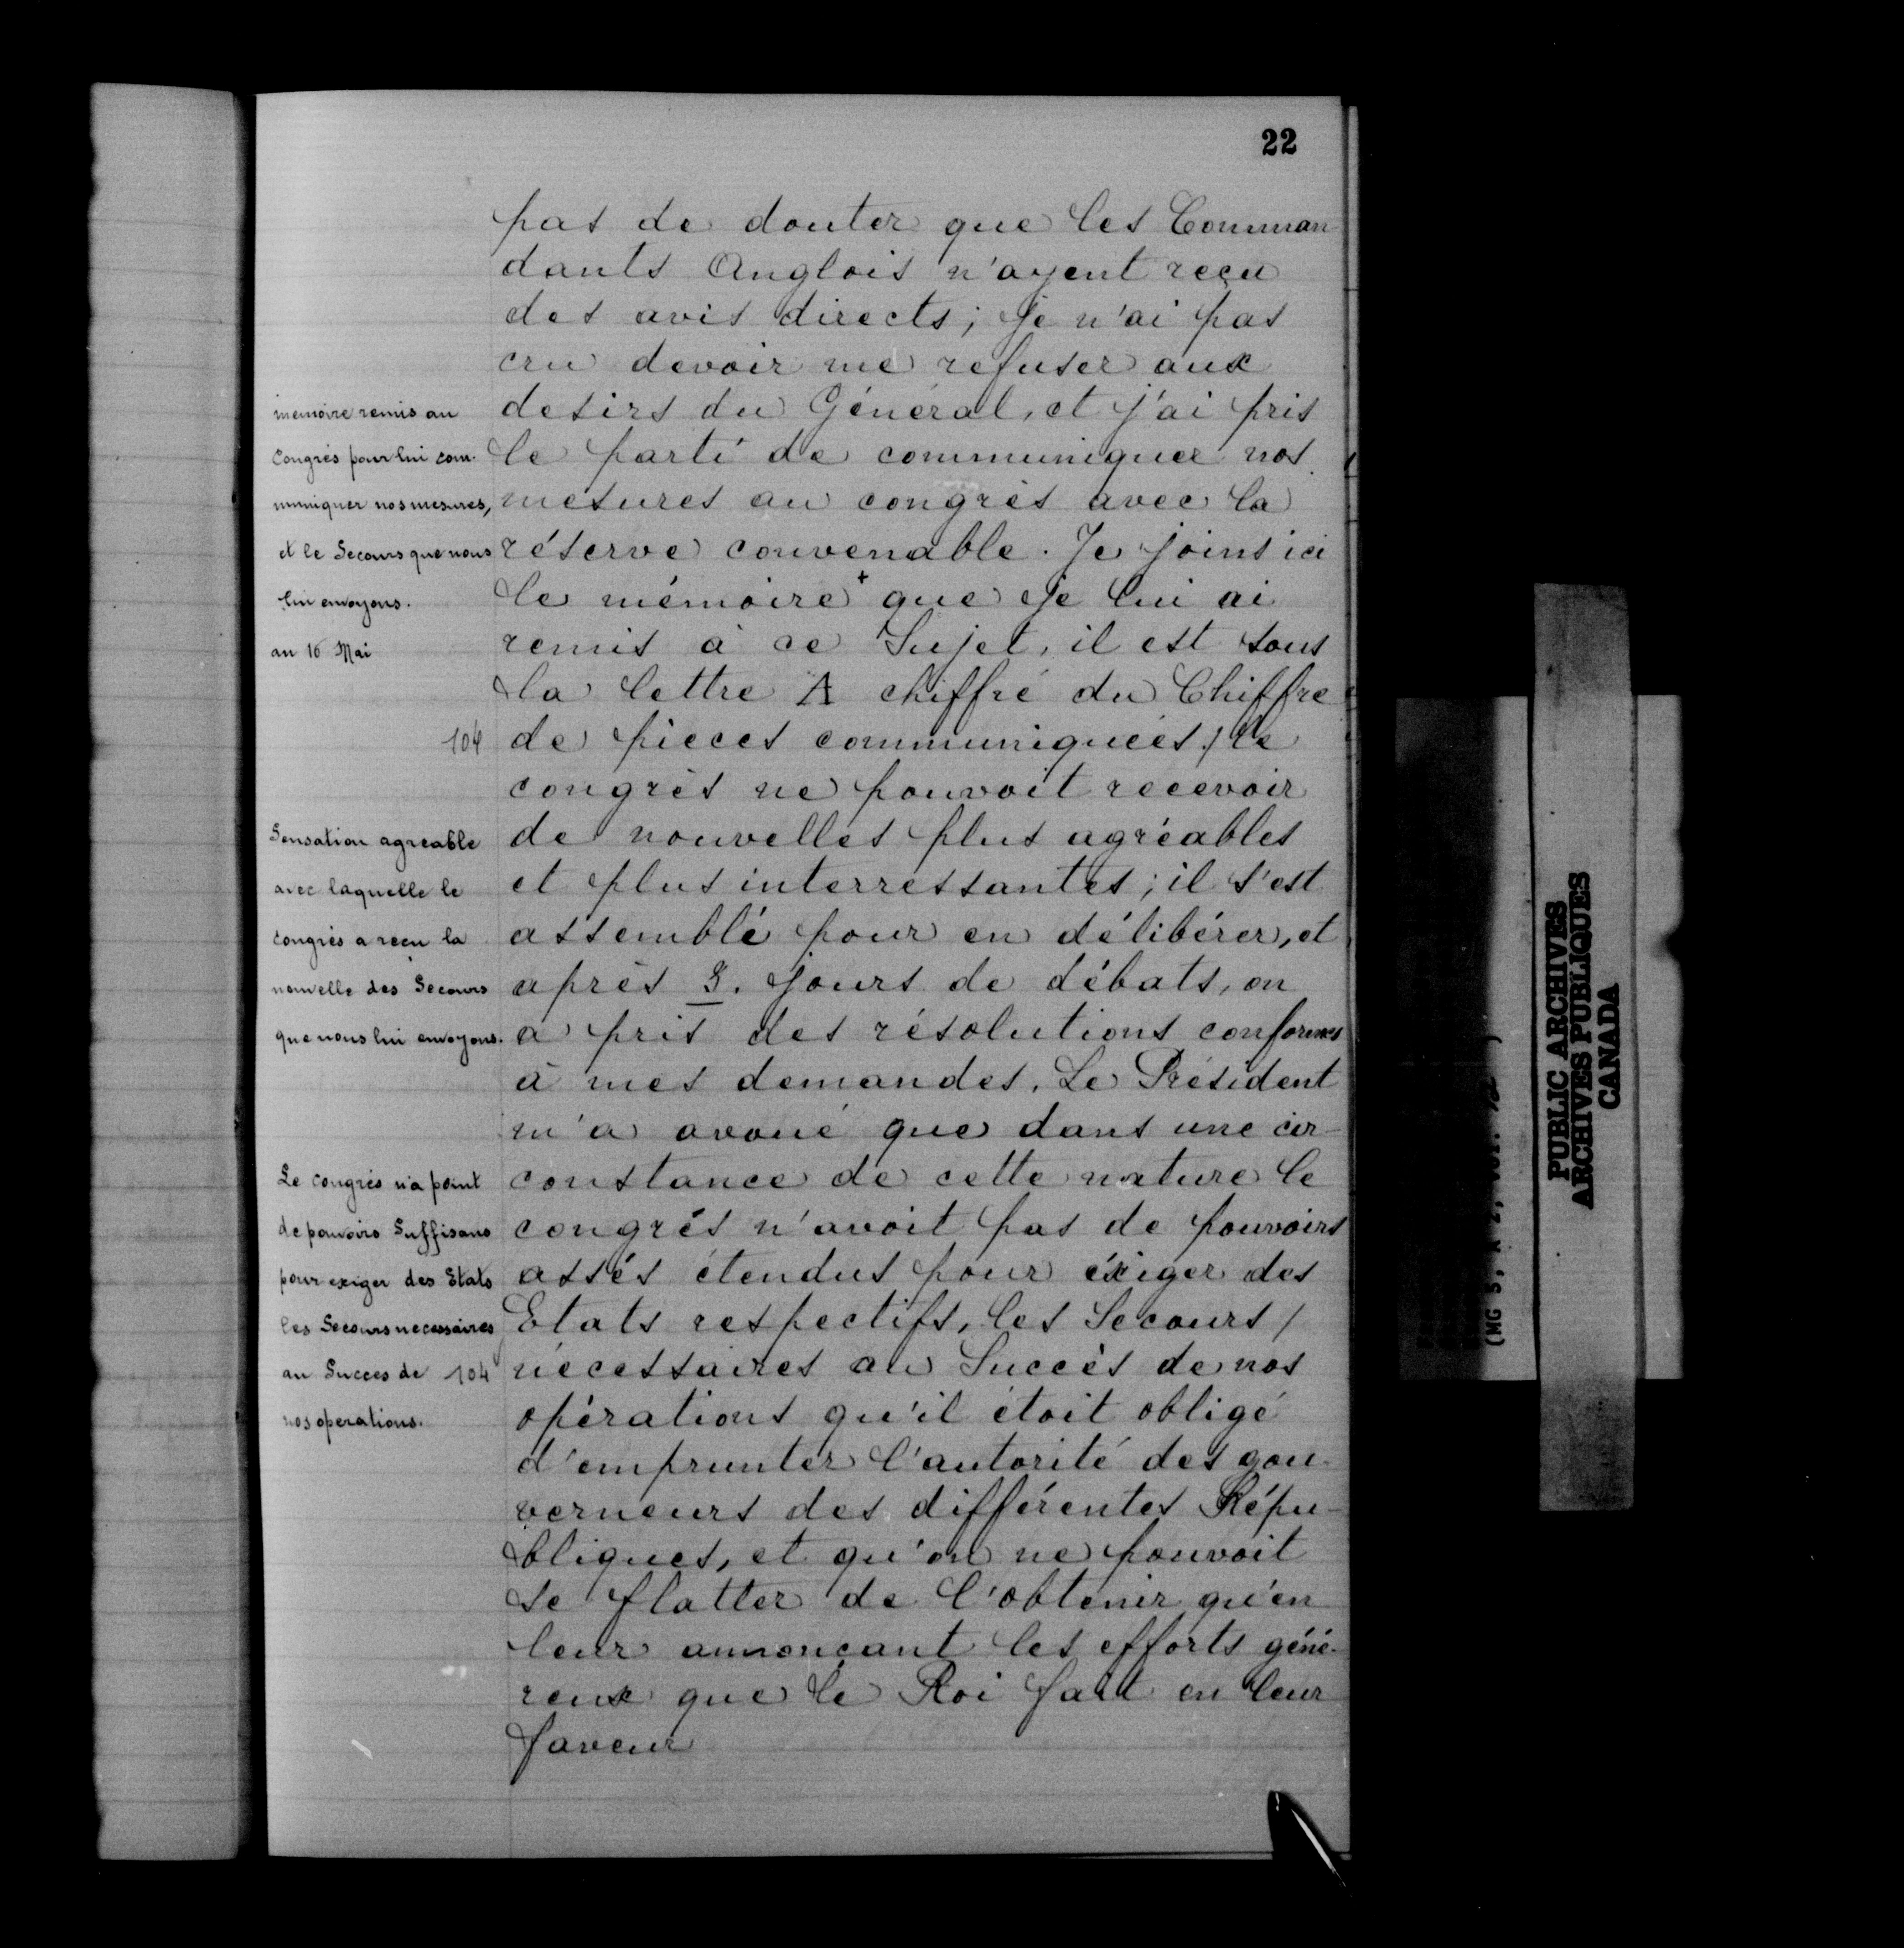 22
pas de douter que les Comman
dants Anglois n'ayent reçu
des avis directs; je n'ai pas
cru devoir me refuser aux
desirs du Général, et j'ai pris
le parti de communiquer nos
mesures au congrès avec la
réserve convenable. Je joins ici
le mémoire+ que je lui ai
remis à ce Sujet, il est sous
la lettre A chiffré du Chiffre
de pieces communiquées / le
congrès ne pouvoit recevoir
de nouvelles plus agréables
et plus interressantes; il s'est
assemblé pour en délibérer, et
après 3. jours de débats, on
a pris des résolutions conformes
à mes demandes. Le Président
m'a avoué que dans une cir-
constance de cette nature le
congrés n'avoit pas de pouvoirs
assés étendus pour éxiger des
Etats respectifs, les Secours /
nécessaires au Succès de nos
opérations qu'il étoit obligé
d'emprunter l'autorité des gou-
verneurs des différentes Répu-
bliques, et qu'on ne pouvoit
se flatter de l'obtenir qu'en
leur annonçant les efforts géné-
reux que le Roi fait en leur
faveur
memoire remis au
Congrès pour lui com-
muniquer nos mesures,
et le Secours que nous
lui envoyons.
au 16 Mai
104
Sensation agreable
avec laquelle le
congrès a reçu la
nouvelle des Secours
que nous lui envoyons.
Le congrès n'a point
de pouvoirs Suffisans
pour exiger des Etats
les Secours necessaires
au Succes de 104
nos operations.
PUBLIC ARCHIVES
ARCHIVES PUBLIQUES
CANADA